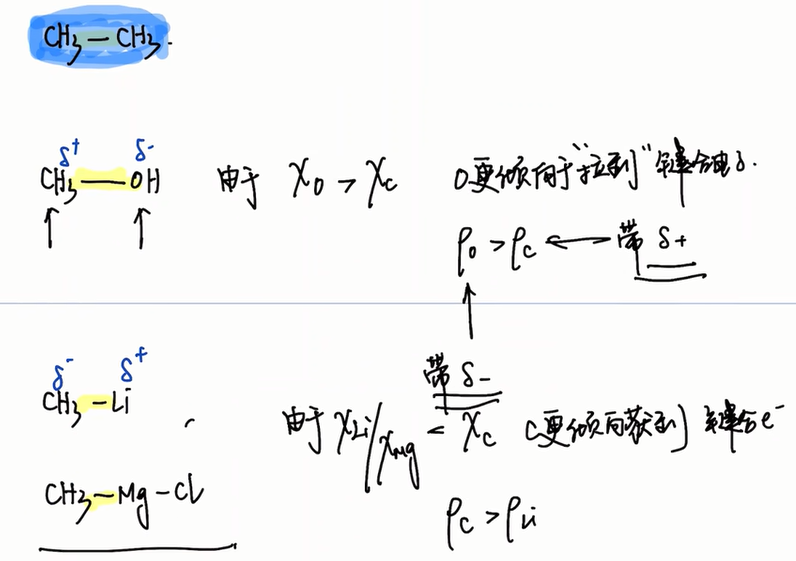 CH3—CH3.
δ+ δ-
CH3—OH 由于 χO > χC O更倾向于“拉到”键合电子.
ρO > ρC ⟷ 带 δ+
带 δ-
δ- δ+
CH3—Li 由于 χLi/χMg < χC C更倾向获到 键合e-
CH3—Mg—Cl ρC > ρLi